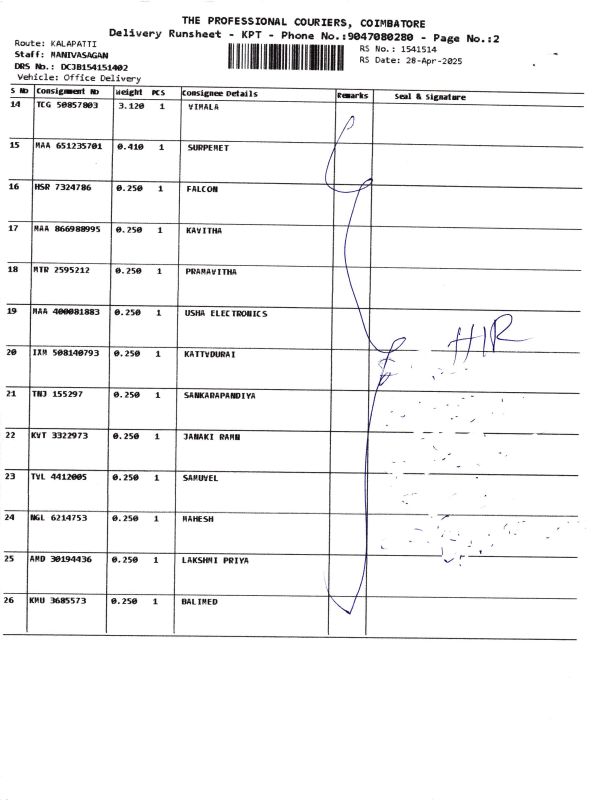 THE PROFESSIONAL COURIERS, COIMBATORE
Delivery Runsheet - KPT - Phone No.:9047080280 - Page No.:2
Route: KALAPATTI
Staff: MANIVASAGAN
DRS No.: DC3B154151402
Vehicle: Office Delivery
RS No.: 1541514
RS Date: 28-Apr-2025
S No Consignment No Weight PCS Consignee Details Remarks Seal & Signature
14 TCG 50857803 3.120 1 VIMALA
15 MAA 651235701 0.410 1 SURPEMET
16 HSR 7324786 0.250 1 FALCON
17 MAA 866988995 0.250 1 KAVITHA
18 MTR 2595212 0.250 1 PRAMAVITHA
19 MAA 400081883 0.250 1 USHA ELECTRONICS
HIR
20 IXM 508140793 0.250 1 KATTVDURAI
21 TNJ 155297 0.250 1 SANKARAPANDIYA
22 KVT 3322973 0.250 1 JANAKI RAMN
23 TVL 4412005 0.250 1 SAMUVEL
24 NGL 6214753 0.250 1 MAHESH
25 AMD 30194436 0.250 1 LAKSHMI PRIYA
26 KMU 3685573 0.250 1 BALIMED